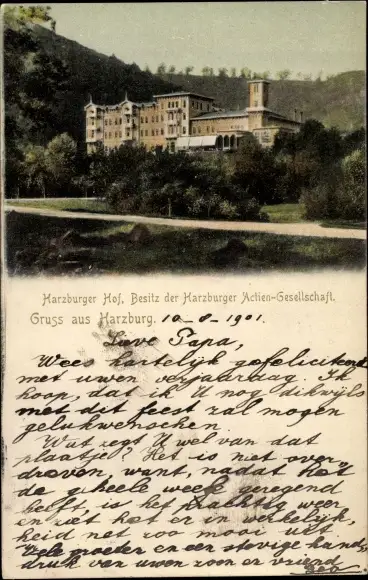 Harzburger Hof, Besitz der Harzburger Actien-Gesellschaft.
Gruss aus Harzburg. 10-8-1901.
Lieve Papa,
Wees hartelijk gefeliciteerd
met uwen verjaardag. Ik
hoop, dat ik U nog dikwijls
met dit feest zal mogen
gelukwenschen.
Wat zegt U wel van dat
plaatje? Het is niet over-
dreven, want, nadat het
de geheele week geregend
heeft, is het prachtig weer
en ziet het er in werkelijk-
heid net zoo mooi uit.
Vele moeder en een stevige hand-
druk van uwen zoon en vriend